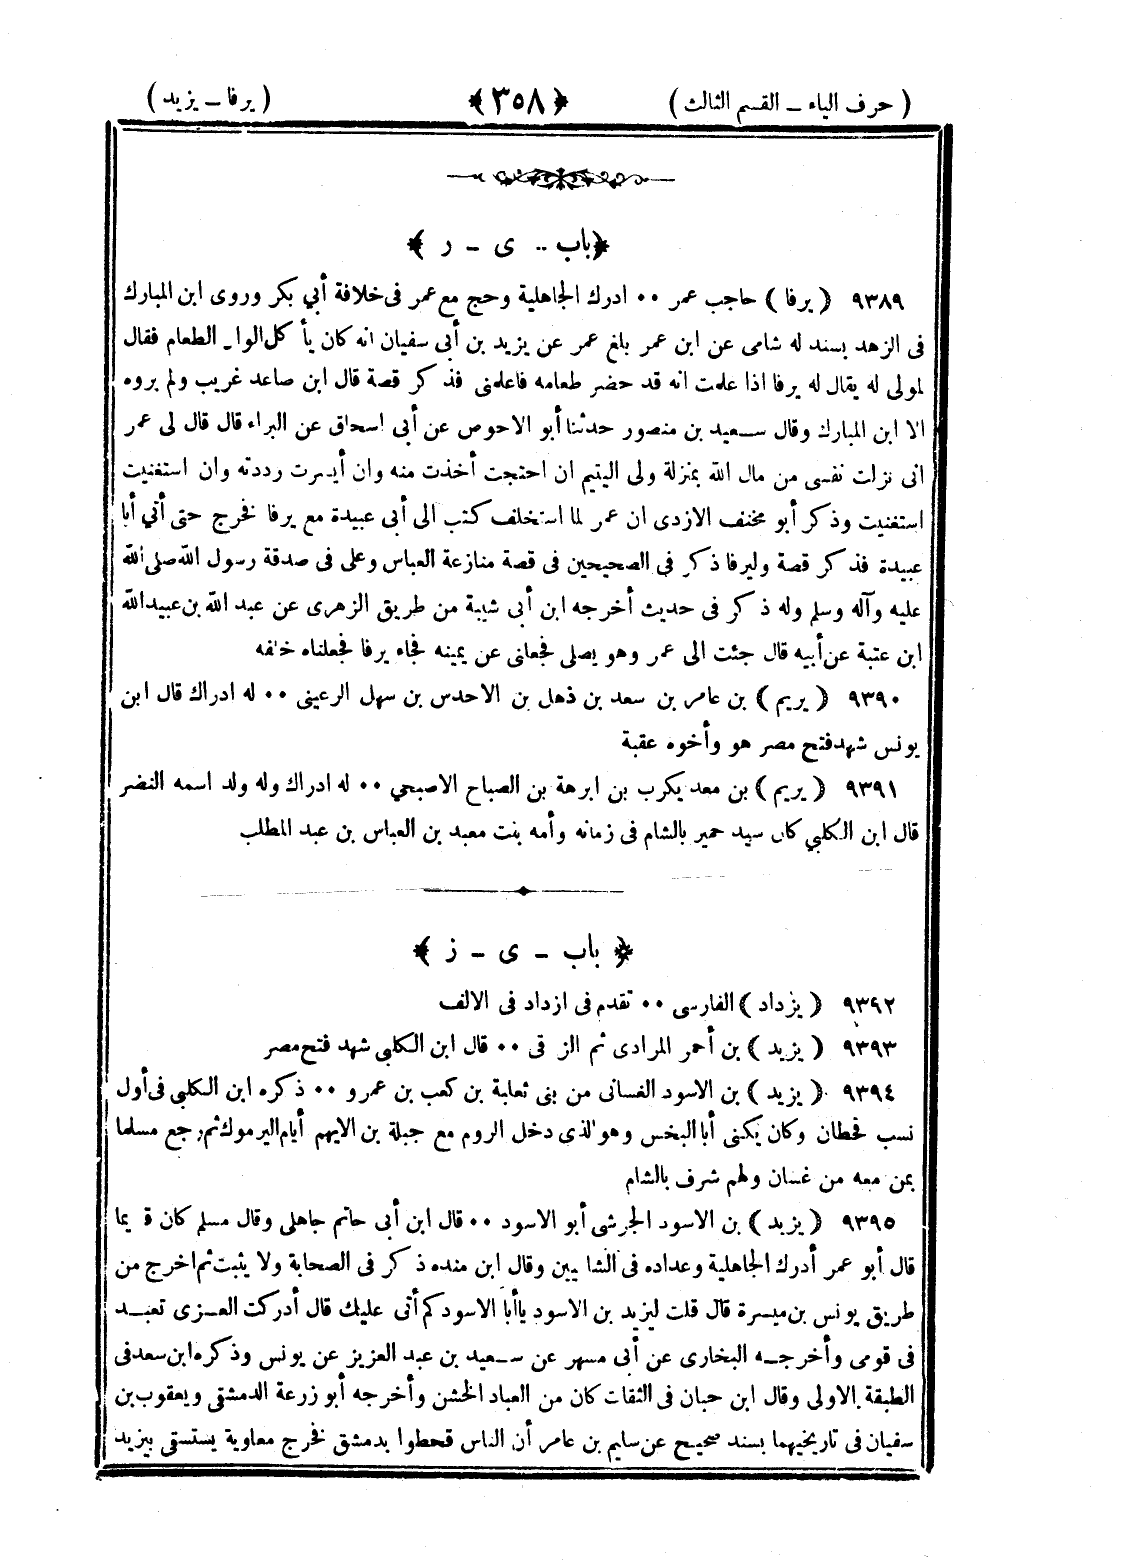 ( حرف الياء ــ القسم الثالث ) ﴿٣٥٨﴾ ( يرفا ــ يزيد )
﴿باب .. ى - ر ﴾
٩٣٨٩ ( يرفا ) حاجب عمر ٠٠ ادرك الجاهلية وحج مع عمر فى خلافة أبي بكر وروى ابن المبارك
فى الزهد بسند له شامى عن ابن عمر بلغ عمر عن يزيد بن أبى سفيان انه كان يأ كل الوا الطعام فقال
لمولى له يقال له يرفا اذا علمت انه قد حضر طعامه فاعلمنى فذ كر قصة قال ابن صاعد غريب ولم يروه
الا ابن المبارك وقال سـعيد بن منصور حدثنا أبو الاحوص عن أبى اسحاق عن البراء قال قال لى عمر
انى نزلت نفسى من مال الله بمنزلة ولى اليتيم ان احتجت أخذت منه وان أيسرت رددته وان استغنيت
استغنيت وذكر أبو مخنف الازدى ان عمر لما استخلف كتب الى أبى عبيدة مع يرفا فخرج حتى أتي أبا
عبيدة فذ كر قصة وليرفا ذكر فى الصحيحين فى قصة منازعة العباس وعلى فى صدقة رسول الله صلى الله
عليه وآله وسلم وله ذ كر فى حديث أخرجه ابن أبى شيبة من طريق الزهرى عن عبد الله بن عبيد الله
ابن عتبة عن أبيه قال جئت الى عمر وهو يصلى فجعلنى عن يمينه فجاء يرفا فجعلناه خلفه
٩٣٩٠ ( يريم ) بن عامر بن سعد بن ذهل بن الاحدس بن سهل الرعينى ٠٠ له ادراك قال ابن
يونس شهد فتح مصر هو وأخوه عقبة
٩٣٩١ ( يريم ) بن معد يكرب بن ابرهة بن الصباح الاصبحي ٠٠ له ادراك وله ولد اسمه النضر
قال ابن الكلبي كان سيد حمير بالشام فى زمانه وأمه بنت معبد بن العباس بن عبد المطلب
﴿ باب ــ ى ـ ز ﴾
٩٣٩٢ ( يزداد ) الفارسى ٠٠ تقدم فى ازداد فى الالف
٩٣٩٣ ( يزيد ) بن أحمر المرادى ثم الز فى ٠٠ قال ابن الكلبى شهد فتح مصر
٩٣٩٤ ( يزيد ) بن الاسود الغسانى من بنى ثعلبة بن كعب بن عمرو ٠٠ ذكره ابن الكلبي فى أول
نسب قحطان وكان يكنى أبا البخس وهو الذى دخل الروم مع جبلة بن الايهم أيام اليرموك ثم رجع مسلما
بمن معه من غسان ولهم شرف بالشام
٩٣٩٥ ( يزيد ) بن الاسود الجرشى أبو الاسود ٠٠ قال ابن أبى حاتم جاهلى وقال مسلم كان ق يما
قال أبو عمر أدرك الجاهلية وعداده فى الشا يين وقال ابن منده ذ كر فى الصحابة ولا يثبت ثم اخرج من
طريق يونس بن ميسرة قال قلت ليزيد بن الاسود يا أبا الاسود كم أتى عليك قال أدركت العـزى تعبـد
فى قومى وأخرجـه البخارى عن أبى مسهر عن سـعيد بن عبد العزيز عن يونس وذكره ابن سعد فى
الطبقة الاولى وقال ابن حبان فى الثقات كان من العباد الخشن وأخرجه أبو زرعة الدمشقى ويعقوب بن
سفيان فى تاريخيهما بسند صحيـح عن سليم بن عامر أن الناس قحطوا بدمشق فخرج معاوية يستسقى بيزيد